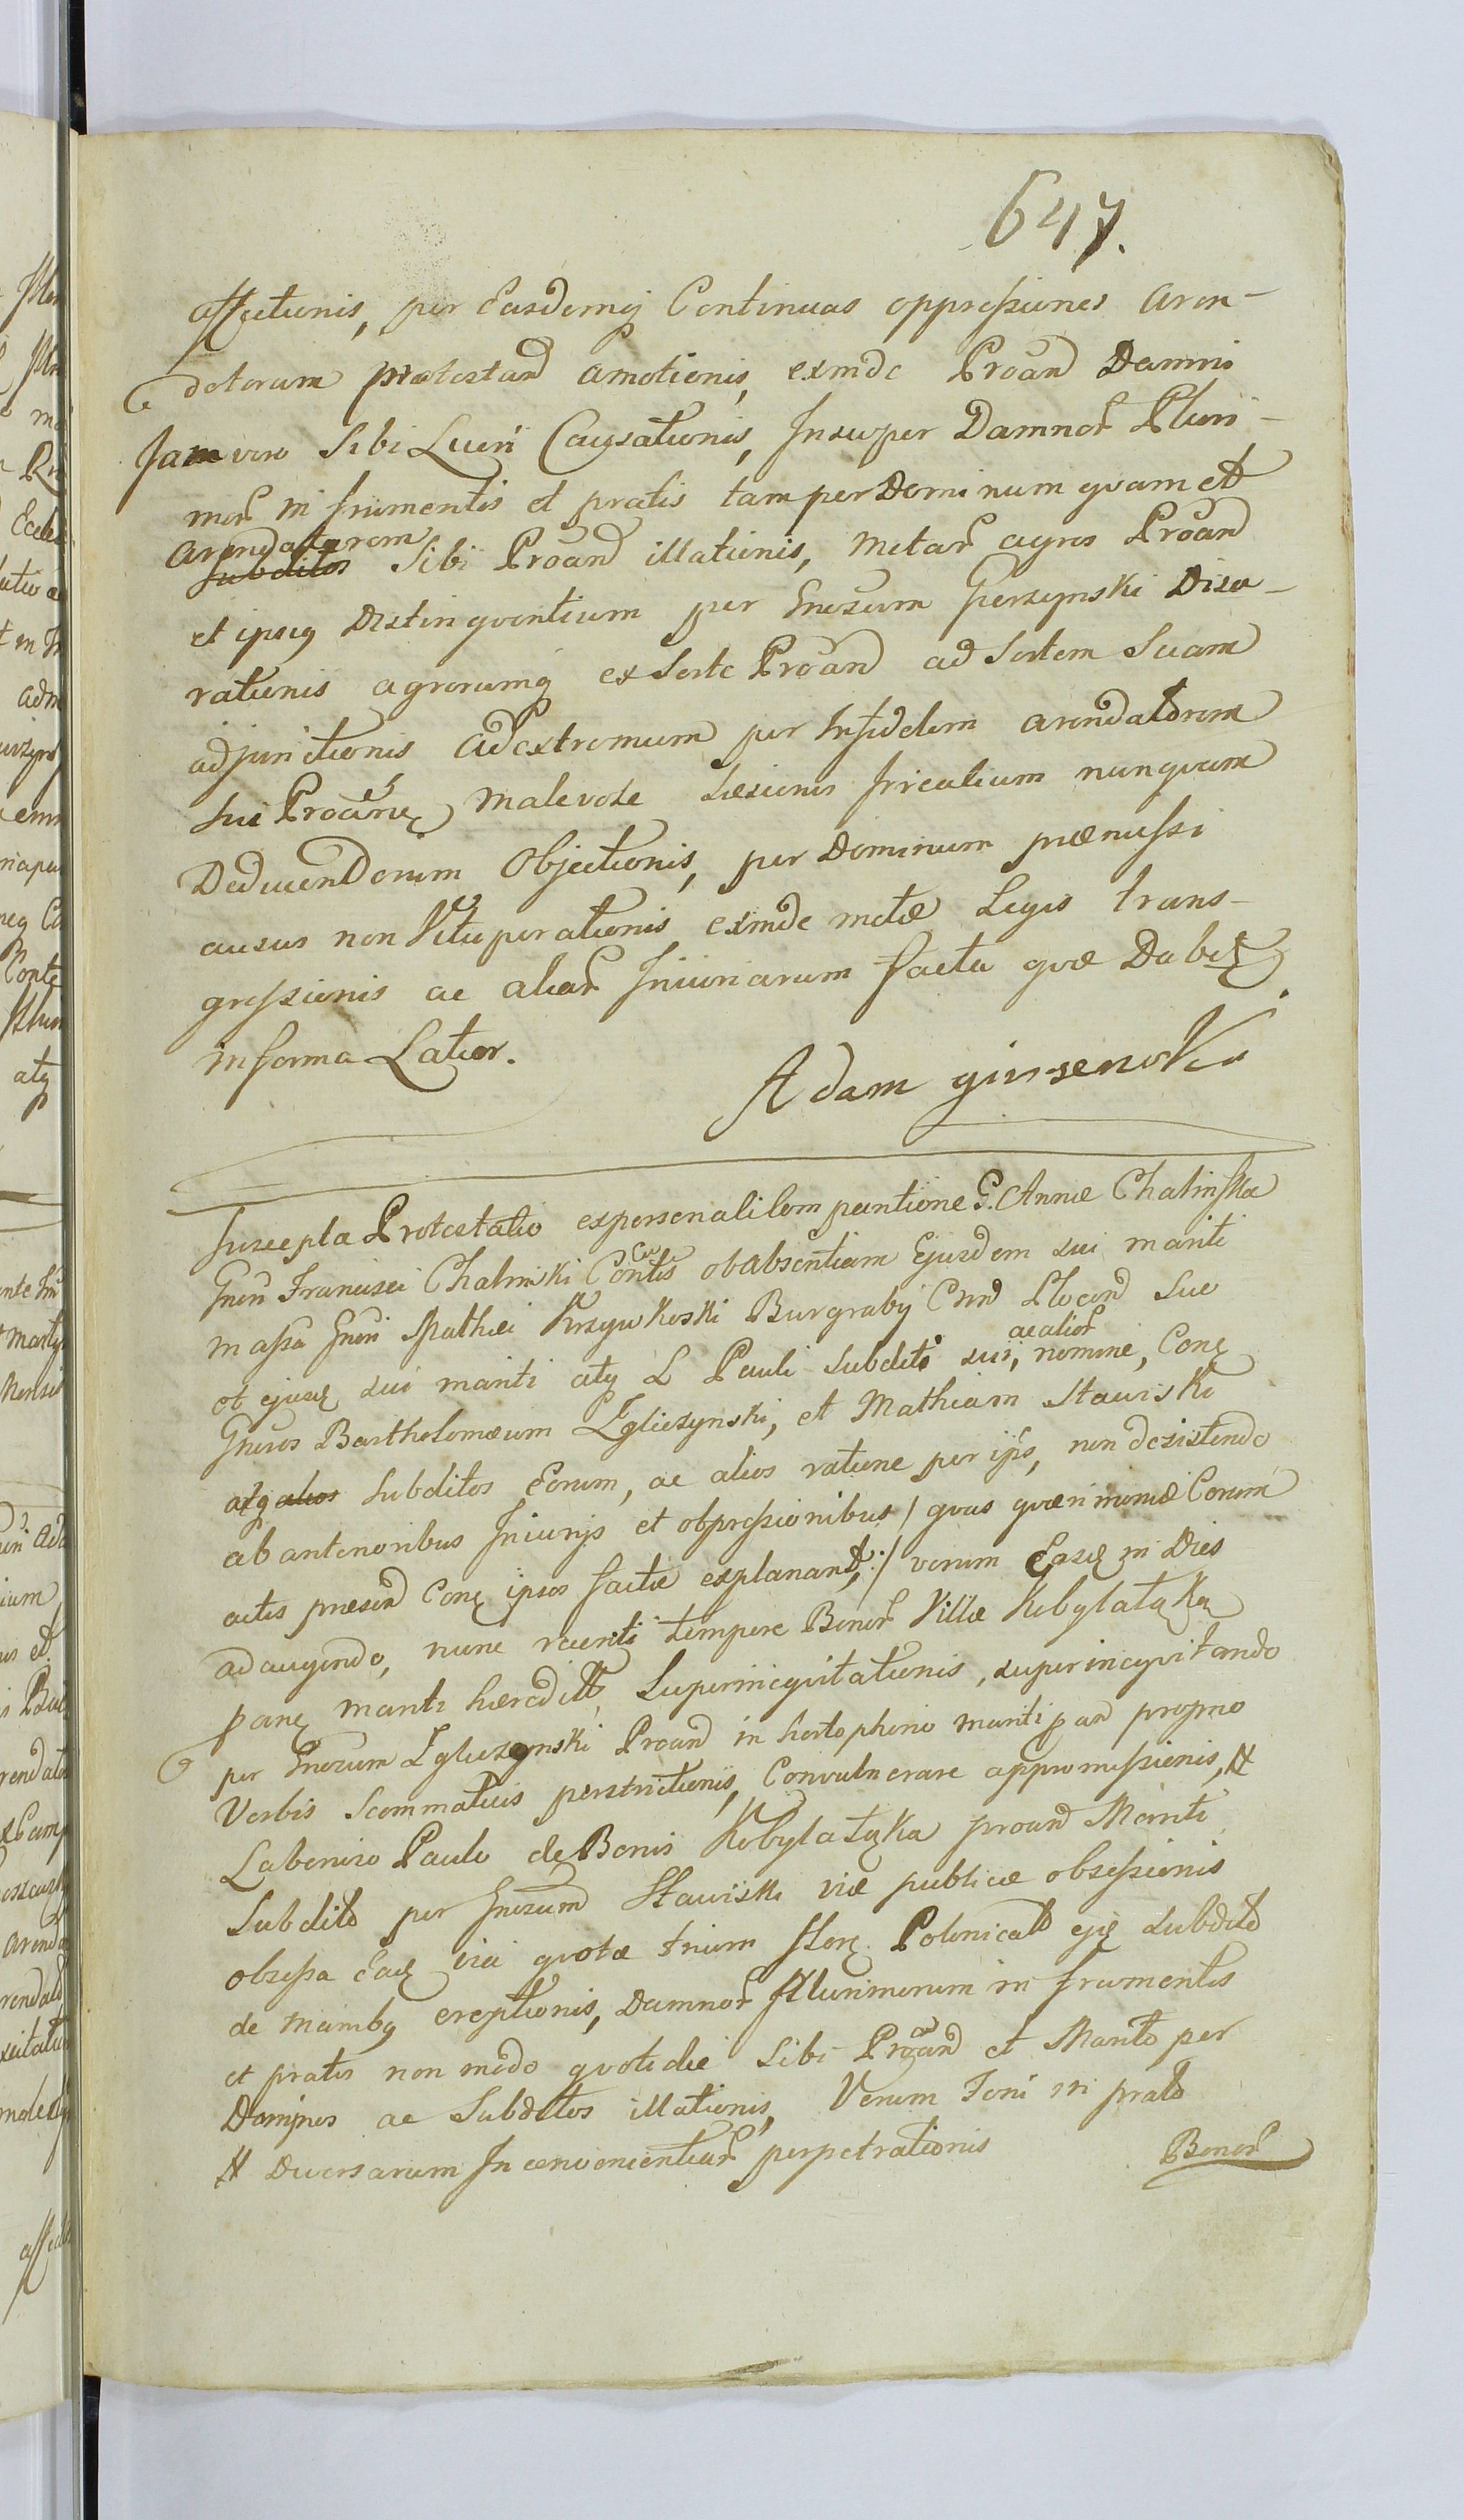 647.
affectionis, per Easdemq Continuas oppressiones Aren-
datorum protestand amotionis, exinde Proand Damni
Jam vero Sibi Lucri Causationis, Insuper Damnor Pluri-
mor in frumentis et pratis tam per Dominum qvam et
Arendatorem
subditos Sibi Proand illationis, Metar agros Proand
et ipsiq Distinqventium per Gnosum Gerzynski Disa-
rationis agrorumq ex Sorte Proand ad Sortem Suam
adjunctionis ad extremum per Infidelem arendatorem
Sui Proane malevole Læsionis irrealium nunqvam
Deducendorum Objectionis, per Dominum præmissi
ausus non Vituperationis exinde metæ Legis trans-
gressionis ac aliar Iniuriarum facta qvæ Dabit
in forma Latior.
Adam
Suscepta Protestatio ex personali Com partione G. Annæ Chalinska
Gnen Francisci Chalinski Contis ob absentiam Ejusdem sui mariti
massa Gnen Mathei Krzywkoski Burgrabij Plocen Suo
et ejusq sui mariti atq L Pauli Subditi sui, ac alior nomine, Conq
Gnosos Bartholomæum Zglieszynski, et Mathiam Stawiski
atq alios Subditos Eorum, ac alios ratione per ijs, non desistendo
ab anterioribus Iniurijs et obpressionibus / qvas qværimoniæ Coram
actis præsen Conq ipsos factæ explanant, :/ verum Easq in Dies
adaugendo, nunc recenti tempore Bonor Villæ Kobylatąka
panq mariti hæredit Superineqvitationis, superineqvitando
per Gnosum Zglieszynski Proand in hortopherio mariti pan proprio
Verbis Scommaticis perstrictionis, Convulnerare appromissionis, #
Laborioso Paulo de Bonis Kobylatąka proand Mariti
Subdito per Gnosum Stawiski viæ publicæ obsessionis
obsessa Eaq via qvotæ trium flor. Polonicalt ejq Subdito
de manibq ereptionis, Damnor Plurimorum in frumentis
et pratis non modo qvotidie Sibi Proand et Marito per
Dominos ac Subditos illationis, Verum Foni in prato
# Diversarum Inconvenientiar perpetrationis
Bonor